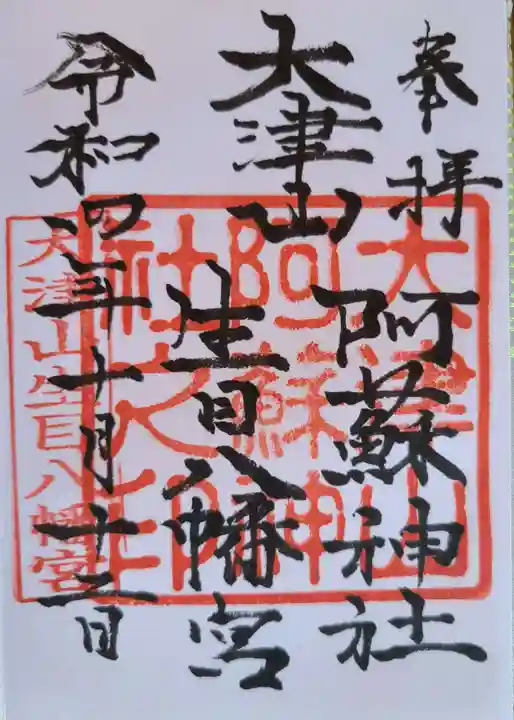 奉拝
大津山
阿蘇神社
生目八幡宮
令和四年十月十二日
大津山
阿蘇神
社之印
天津山生目八幡宮